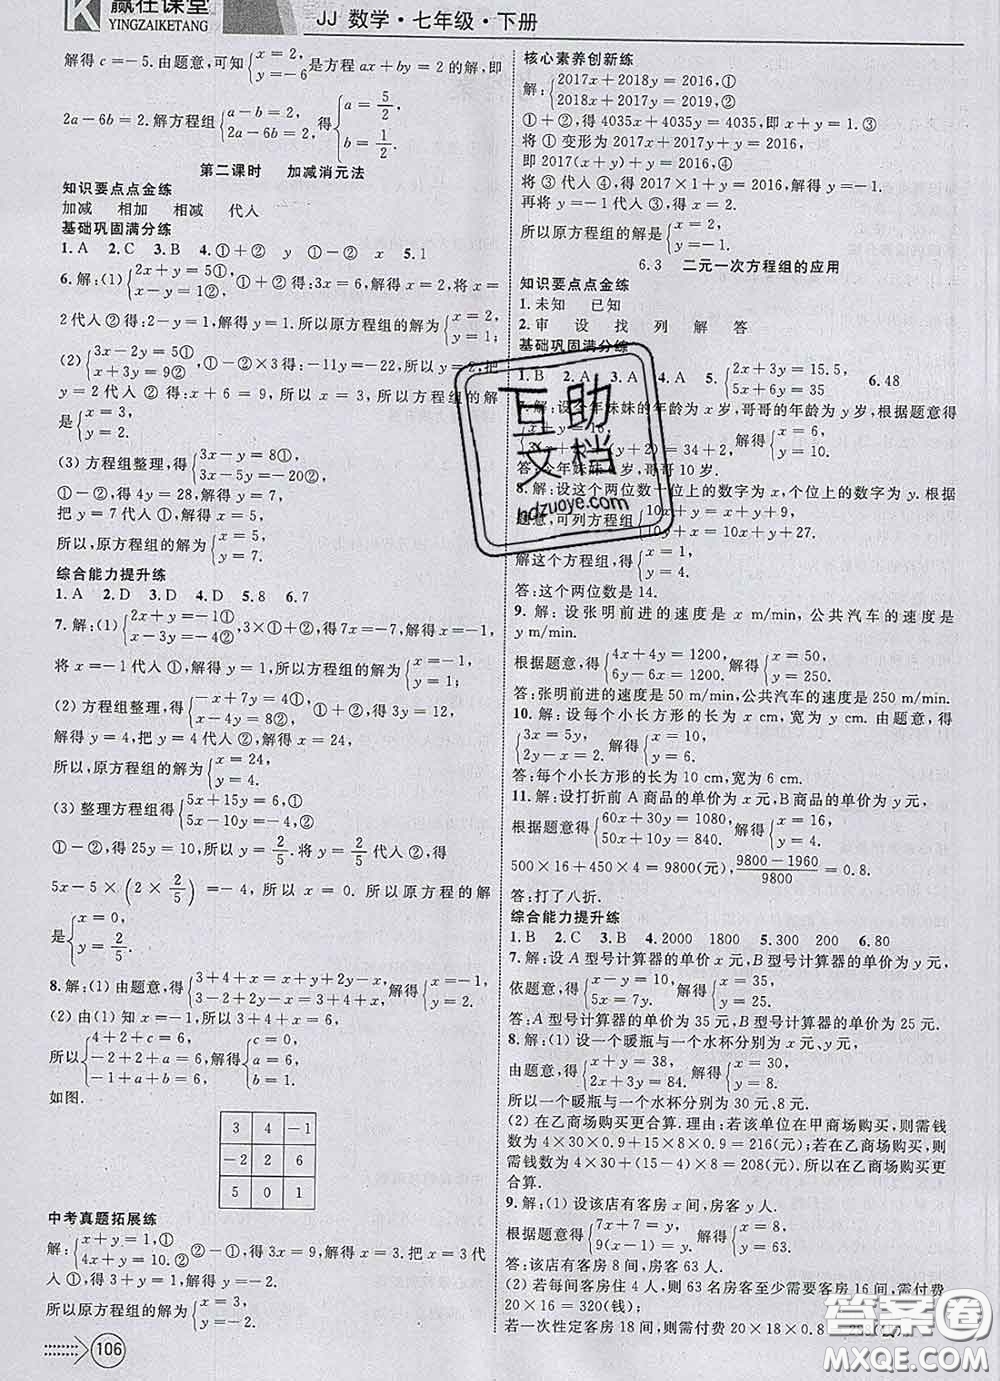 赢在课堂
YINGZAIKETANG
JJ 数学·七年级·下册
解得 c=-5. 由题意,可知{x=2, y=-6 是方程 ax+by=2 的解,即
2a-6b=2. 解方程组{a-b=2, 2a-6b=2, 得{a=5/2, b=1/2.
第二课时 加减消元法
知识要点点金练
加减 相加 相减 代入
基础巩固满分练
1. A 2. C 3. B 4. ①+② y ①-② x 5. 1
6. 解:(1){2x+y=5①, x-y=1②, ①+②得:3x=6,解得 x=2,将 x=
2代入②得:2-y=1,解得 y=1. 所以原方程组的解为{x=2, y=1;
(2){3x-2y=5①, x+3y=9②, ①-②×3得:-11y=-22,所以 y=2,把
y=2代入②得:x+6=9,所以 x=3,所以原方程组的解
是{x=3, y=2.
(3)方程组整理,得{3x-y=8①, 3x-5y=-20②,
①-②,得 4y=28,解得 y=7,
把 y=7代入①,得 x=5,
所以,原方程组的解为{x=5, y=7.
综合能力提升练
1. A 2. D 3. D 4. D 5. 8 6. 7
7. 解:(1){2x+y=-1①, x-3y=-4②, 3×①+②,得 7x=-7,解得 x=-1,
将 x=-1代入①,解得 y=1,所以原方程组的解为{x=-1, y=1;
(2)方程组整理,得{-x+7y=4①, x-4y=8②, ①+②,得 3y=12,
解得 y=4,把 y=4代入②,解得 x=24,
所以,原方程组的解为{x=24, y=4.
(3)整理方程组得{5x+15y=6,① 5x-10y=-4,②
①-②,得 25y=10,所以 y=2/5. 将 y=2/5 代入②,得
5x-5×(2×2/5)=-4,所以 x=0. 所以原方程的解
是{x=0, y=2/5.
8. 解:(1)由题意,得{3+4+x=x+y+2y-x, 3-2+2y-x=3+4+x, 解得{x=-1, y=2.
(2)由(1)知 x=-1,所以 3+4+x=6.
所以{4+2+c=6, a+2+2×2=6, a+b+c=6, 解得{c=0, a=0, b=1.
如图.
3 4 -1
-2 2 6
5 0 1
中考真题拓展练
解:{x+y=1,① 4x+y=10.② ②-①,得 3x=9,解得 x=3. 把 x=3代
入①,得 3+y=1,解得 y=-2.
所以原方程组的解为{x=3, y=-2.
106
核心素养创新练
解:{2017x+2018y=2016,① 2018x+2017y=2019,②
①+②,得 4035x+4035y=4035,即 x+y=1.③
将①变形为 2017x+2017y+y=2016,
即 2017(x+y)+y=2016,④
将③代入④,得 2017×1+y=2016,
解得 y=-1. 将 y=-1代入③,得 x=2.
所以原方程组的解是{x=2, y=-1.
6.3 二元一次方程组的应用
知识要点点金练
1. 未知 已知
2. 审 设 找 列 解 答
基础巩固满分练
1. B 2. A 3. A 4. A 5. {3x+2y=15.5, 5x+6y=35 6. 48
7. 解:设今年妹妹的年龄为 x 岁,哥哥的年龄为 y 岁,根据题意得
{x+y=16, 3(x+2)+(y+2)=34+2, 解得{x=6, y=10.
答:今年妹妹6岁,哥哥10岁.
8. 解:设这个两位数十位上的数字为 x,个位上的数字为 y. 根据
题意,可列方程组{10x+y=x+y+9, 10y+x=10x+y+27,
解这个方程组,得{x=1, y=4.
答:这个两位数是14.
9. 解:设张明前进的速度是 x m/min,公共汽车的速度是
y m/min.
根据题意,得{4x+4y=1200, 6y-6x=1200, 解得{x=50, y=250.
答:张明前进的速度是 50 m/min,公共汽车的速度是 250 m/min.
10. 解:设每个小长方形的长为 x cm,宽为 y cm. 由题意,得
{3x=5y, 2y-x=2. 解得{x=10, y=6.
答:每个小长方形的长为 10 cm,宽为 6 cm.
11. 解:设打折前 A 商品的单价为 x 元,B 商品的单价为 y 元,
根据题意得{60x+30y=1080, 50x+10y=840. 解得{x=16, y=4.
500×16+450×4=9800(元),(9800-1960)/9800=0.8.
答:打了八折.
综合能力提升练
1. B 2. C 3. B 4. 2000 1800 5. 300 200 6. 80
7. 解:设 A 型号计算器的单价 x 元,B 型号计算器的单价为 y 元,
依题意,得{x-y=10, 5x=7y. 解得{x=35, y=25.
答:A 型号计算器的单价为 35 元,B 型号计算器的单价为 25 元.
8. 解:(1)设一个暖瓶与一个水杯分别为 x 元、y 元,
由题意,得{x+y=38, 2x+3y=84. 解得{x=30, y=8.
所以一个暖瓶与一个水杯分别为 30 元、8 元.
(2)在乙商场购买更合算. 理由:若该单位在甲商场购买,则需
钱数为 4×30×0.9+15×8×0.9=216(元);若在乙商场购买,则
需钱数为 4×30+(15-4)×8=208(元),所以在乙商场购买更
合算.
9. 解:(1)设该店有客房 x 间,房客 y 人.
根据题意得{7x+7=y, 9(x-1)=y. 解得{x=8, y=63.
答:该店有客房8间,房客63人.
(2)若每间客房住4人,则63名房客至少需要客房16间,需付费
20×16=320(钱);
若一次性定客房18间,则需付费 20×18×0.8
互助
文档
hdzuoye.com
答案圈
MXQE.COM